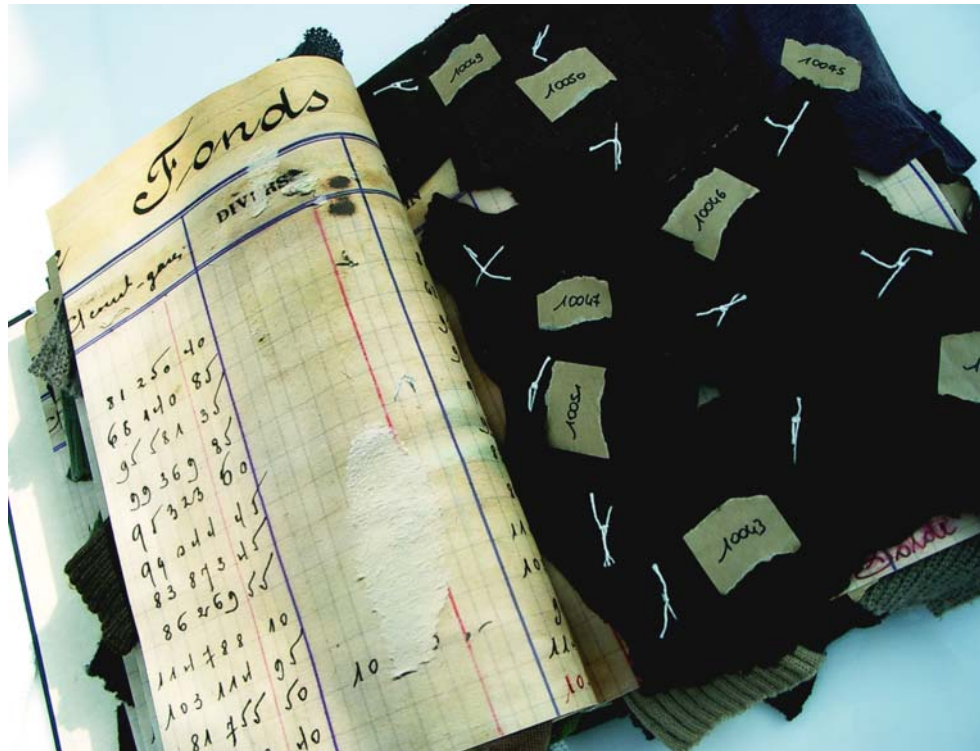 Fonds
DIVERS
81 250 40
68 140 85
95 581 35
99 369 85
95 323 60
94 044 45
83 873 45
86 269 55
114 788 10
103 114 95
81 755 50
40
10
10049
10050
10045
10046
10047
10051
10043